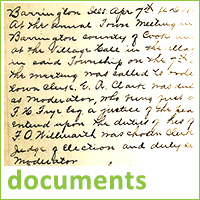 Barrington Ills. Apr 7th
of the annual Town Meeting
Barrington County of Cook
at the Village Hall in the
in said Township on the 7th
The meeting was called to order
Town Clerk. E. R. Clark was
as Moderator, who being
F. H. Frye Esq a justice of the pea
entered upon the duties of his
F. O Willmarth was chosen Clerk
Judge of Election and duly
Moderator
documents